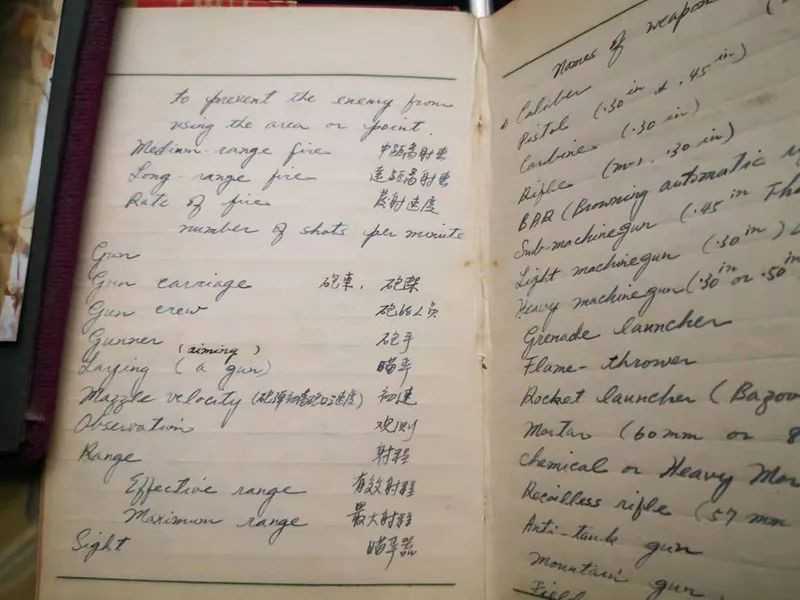 to prevent the enemy from
using the area or point.
Medium-range fire 中距离射击
Long-range fire 远距离射击
Rate of fire 发射速度
number of shots per minute
Gun
Gun carriage 砲车, 砲架
Gun crew 砲班人员
Gunner 砲手
(aiming)
Laying (a gun) 瞄準
Muzzle velocity (砲弹初离砲口速度) 初速
Observation 观测
Range 射程
Effective range 有效射程
Maximum range 最大射程
Sight 瞄準器
Names of weapon
Caliber
Pistol (.30 in & .45 in)
Carbine (.30 in)
Rifle (M-1 .30 in)
BAR (Browning automatic
Sub-machinegun (.45 in
Light machinegun (.30 in)
Heavy machinegun (.30 in or .50 in
Grenade launcher
Flame-thrower
Rocket launcher (Bazoo
Mortar (60 mm or 8
Chemical or Heavy Mor
Recoilless rifle (57 mm
Anti-tank gun
Mountain gun
Field